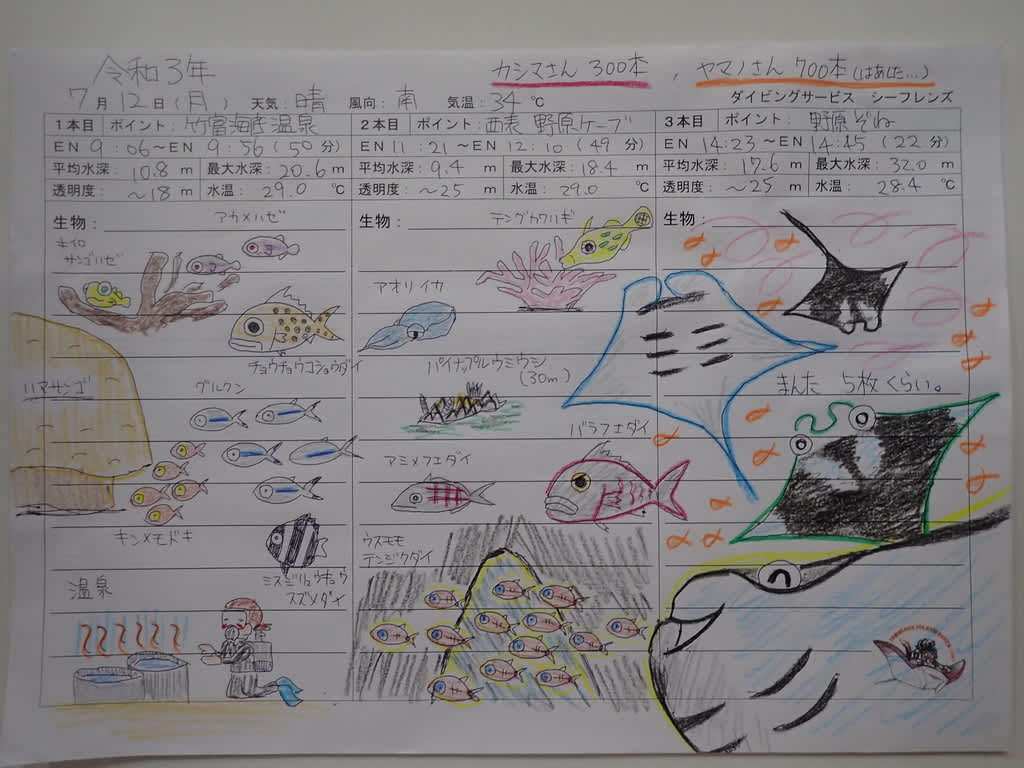 令和3年
カシマさん 300本 , ヤマノさん 700本(はあした...)
7月12日(月) 天気:晴 風向:南 気温:34℃
ダイビングサービス シーフレンズ
1本目 ポイント:竹富海底温泉
EN 9:06〜EN 9:56(50分)
平均水深:10.8m 最大水深:20.6m
透明度:〜18m 水温:29.0℃
生物:
アカメハゼ
キイロ
サンゴハゼ
チョウチョウコショウダイ
ハマサンゴ
グルクン
キンメモドキ
ミスジリュウキュウ
スズメダイ
温泉
2本目 ポイント:西表 野原ケーブ
EN 11:21〜EN 12:10(49分)
平均水深:9.4m 最大水深:18.4m
透明度:〜25m 水温:29.0℃
生物:
テングカワハギ
アオリイカ
パイナップルウミウシ
(30m)
バラフエダイ
アミメフエダイ
ウスモモ
テンジクダイ
3本目 ポイント:野原ぞね
EN 14:23〜EN 14:45(22分)
平均水深:17.6m 最大水深:32.0m
透明度:〜25m 水温:28.4℃
生物:
まんた 5枚くらい。